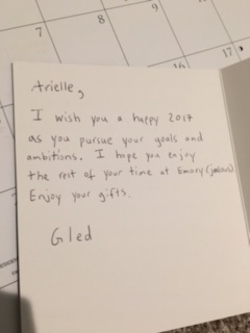 7
8
9
16
17
Arielle,
I wish you a happy 2017
as you pursue your goals and
ambitions. I hope you enjoy
the rest of your time at Emory (jealous).
Enjoy your gifts.
Gled